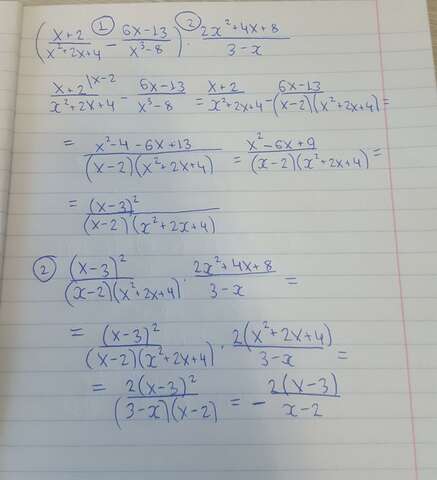 ( (x+2)/(x²+2x+4) ① - (6x-13)/(x³-8) ) ② · (2x²+4x+8)/(3-x)
(x+2)/(x²+2x+4) |x-2 - (6x-13)/(x³-8) = (x+2)/(x²+2x+4) - (6x-13)/((x-2)(x²+2x+4)) =
= (x²-4-6x+13)/((x-2)(x²+2x+4)) = (x²-6x+9)/((x-2)(x²+2x+4)) =
= (x-3)²/((x-2)(x²+2x+4))
② (x-3)²/((x-2)(x²+2x+4)) · (2x²+4x+8)/(3-x) =
= (x-3)²/((x-2)(x²+2x+4)) · 2(x²+2x+4)/(3-x) =
= 2(x-3)²/((3-x)(x-2)) = - 2(x-3)/(x-2)